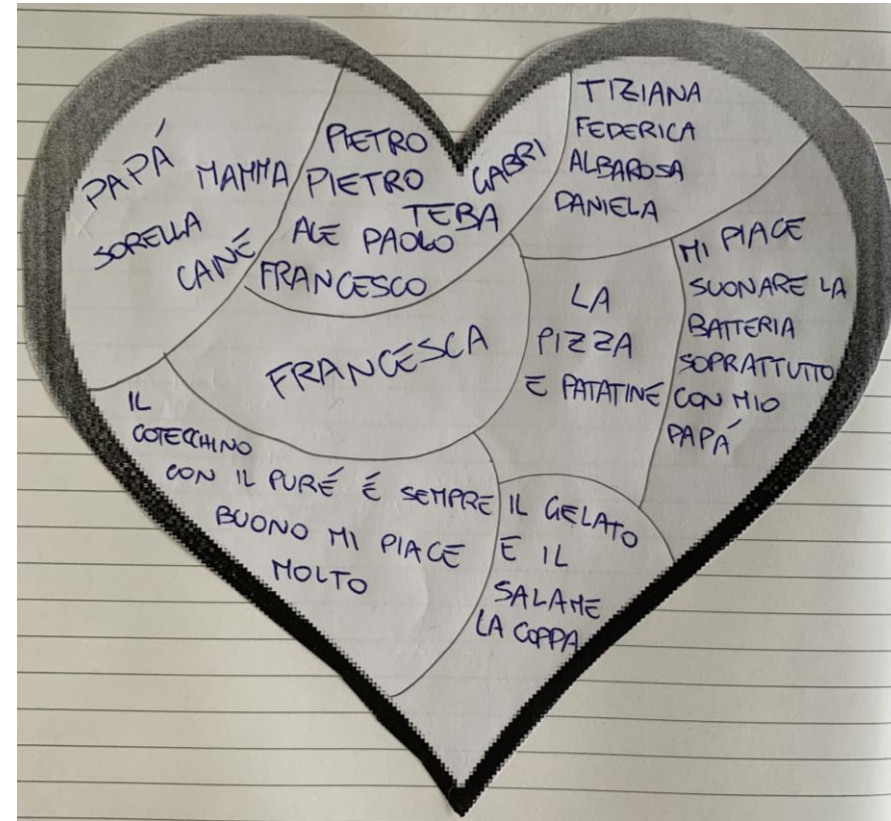 PAPÁ
MAMMA
SORELLA
CANE
PIETRO
PIETRO
GABRI
TEBA
ALE PAOLO
FRANCESCO
TIZIANA
FEDERICA
ALBAROSA
DANIELA
FRANCESCA
LA
PIZZA
E PATATINE
MI PIACE
SUONARE LA
BATTERIA
SOPRATTUTTO
CON MIO
PAPÁ
IL
COTECCHINO
CON IL PURÉ É SEMPRE
BUONO MI PIACE
MOLTO
IL GELATO
E IL
SALAME
LA COPPA